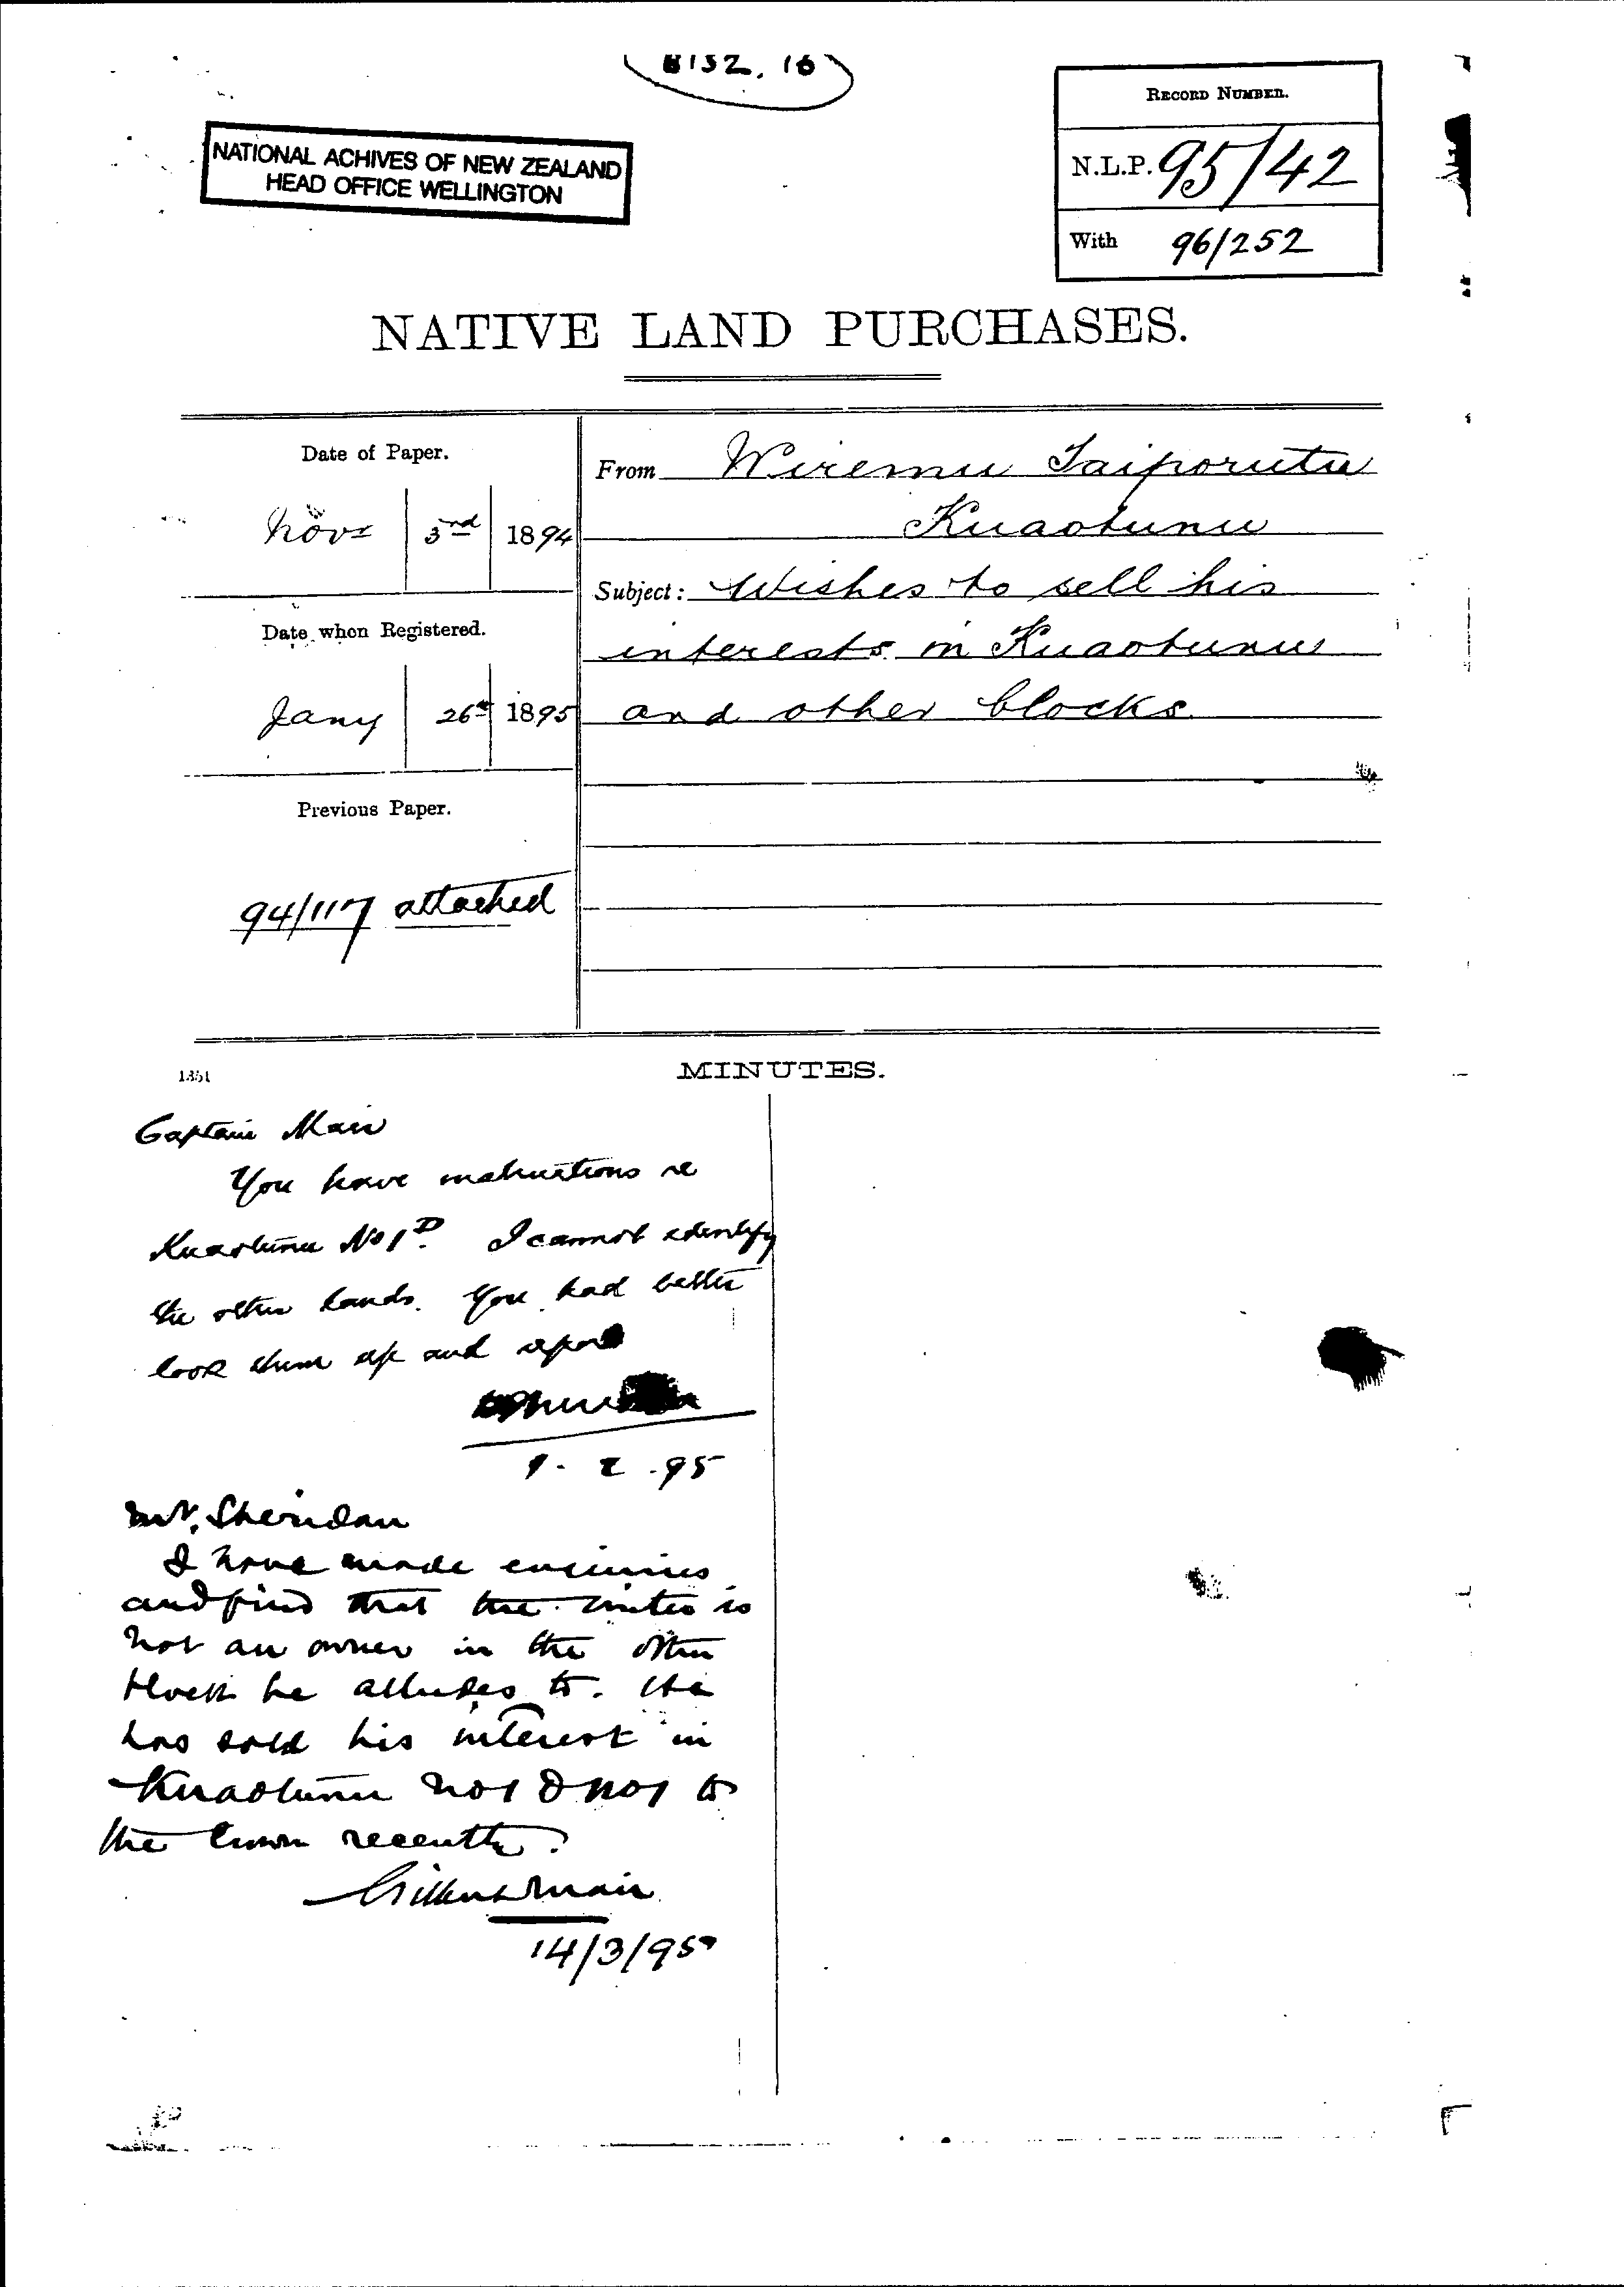 8152. 16
NATIONAL ACHIVES OF NEW ZEALAND
HEAD OFFICE WELLINGTON
RECORD NUMBER.
N.L.P. 95/42
With 96/252
NATIVE LAND PURCHASES.
Date of Paper.
Novr 3rd 1894
Date when Registered.
Jany 26th 1895
Previous Paper.
94/117 attached
From Wiremu Taiporutu
Kuaotunu
Subject: Wishes to sell his
interests in Kuaotunu
and other blocks
1351
MINUTES.
Captain Mair
You have instructions re
Kuaotunu No 1D. I cannot identify
the other lands. You had better
look them up and report
1. 2. 95
Mr. Sheridan
I have made enquiries
and find that the writer is
not an owner in the other
block he alludes to. He
has sold his interest in
Kuaotunu No 1 D No 1 to
the Crown recently.
Gilbert Mair
14/3/95